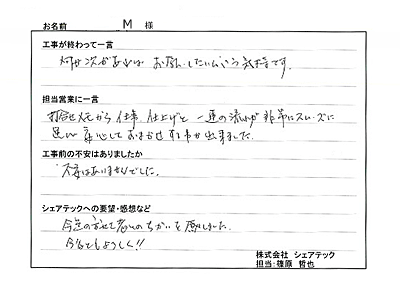 お名前 M 様
工事が終わって一言
お願いしたいという気持です。
担当営業に一言
打合せから仕事、仕上げと一連の流れが非常にスムーズに
安心しておまかせする事が出来ました。
工事前の不安はありましたか
不安はありませんでした。
シェアテックへの要望・感想など
感じました。
今後もよろしく!!
株式会社 シェアテック
担当:篠原 哲也